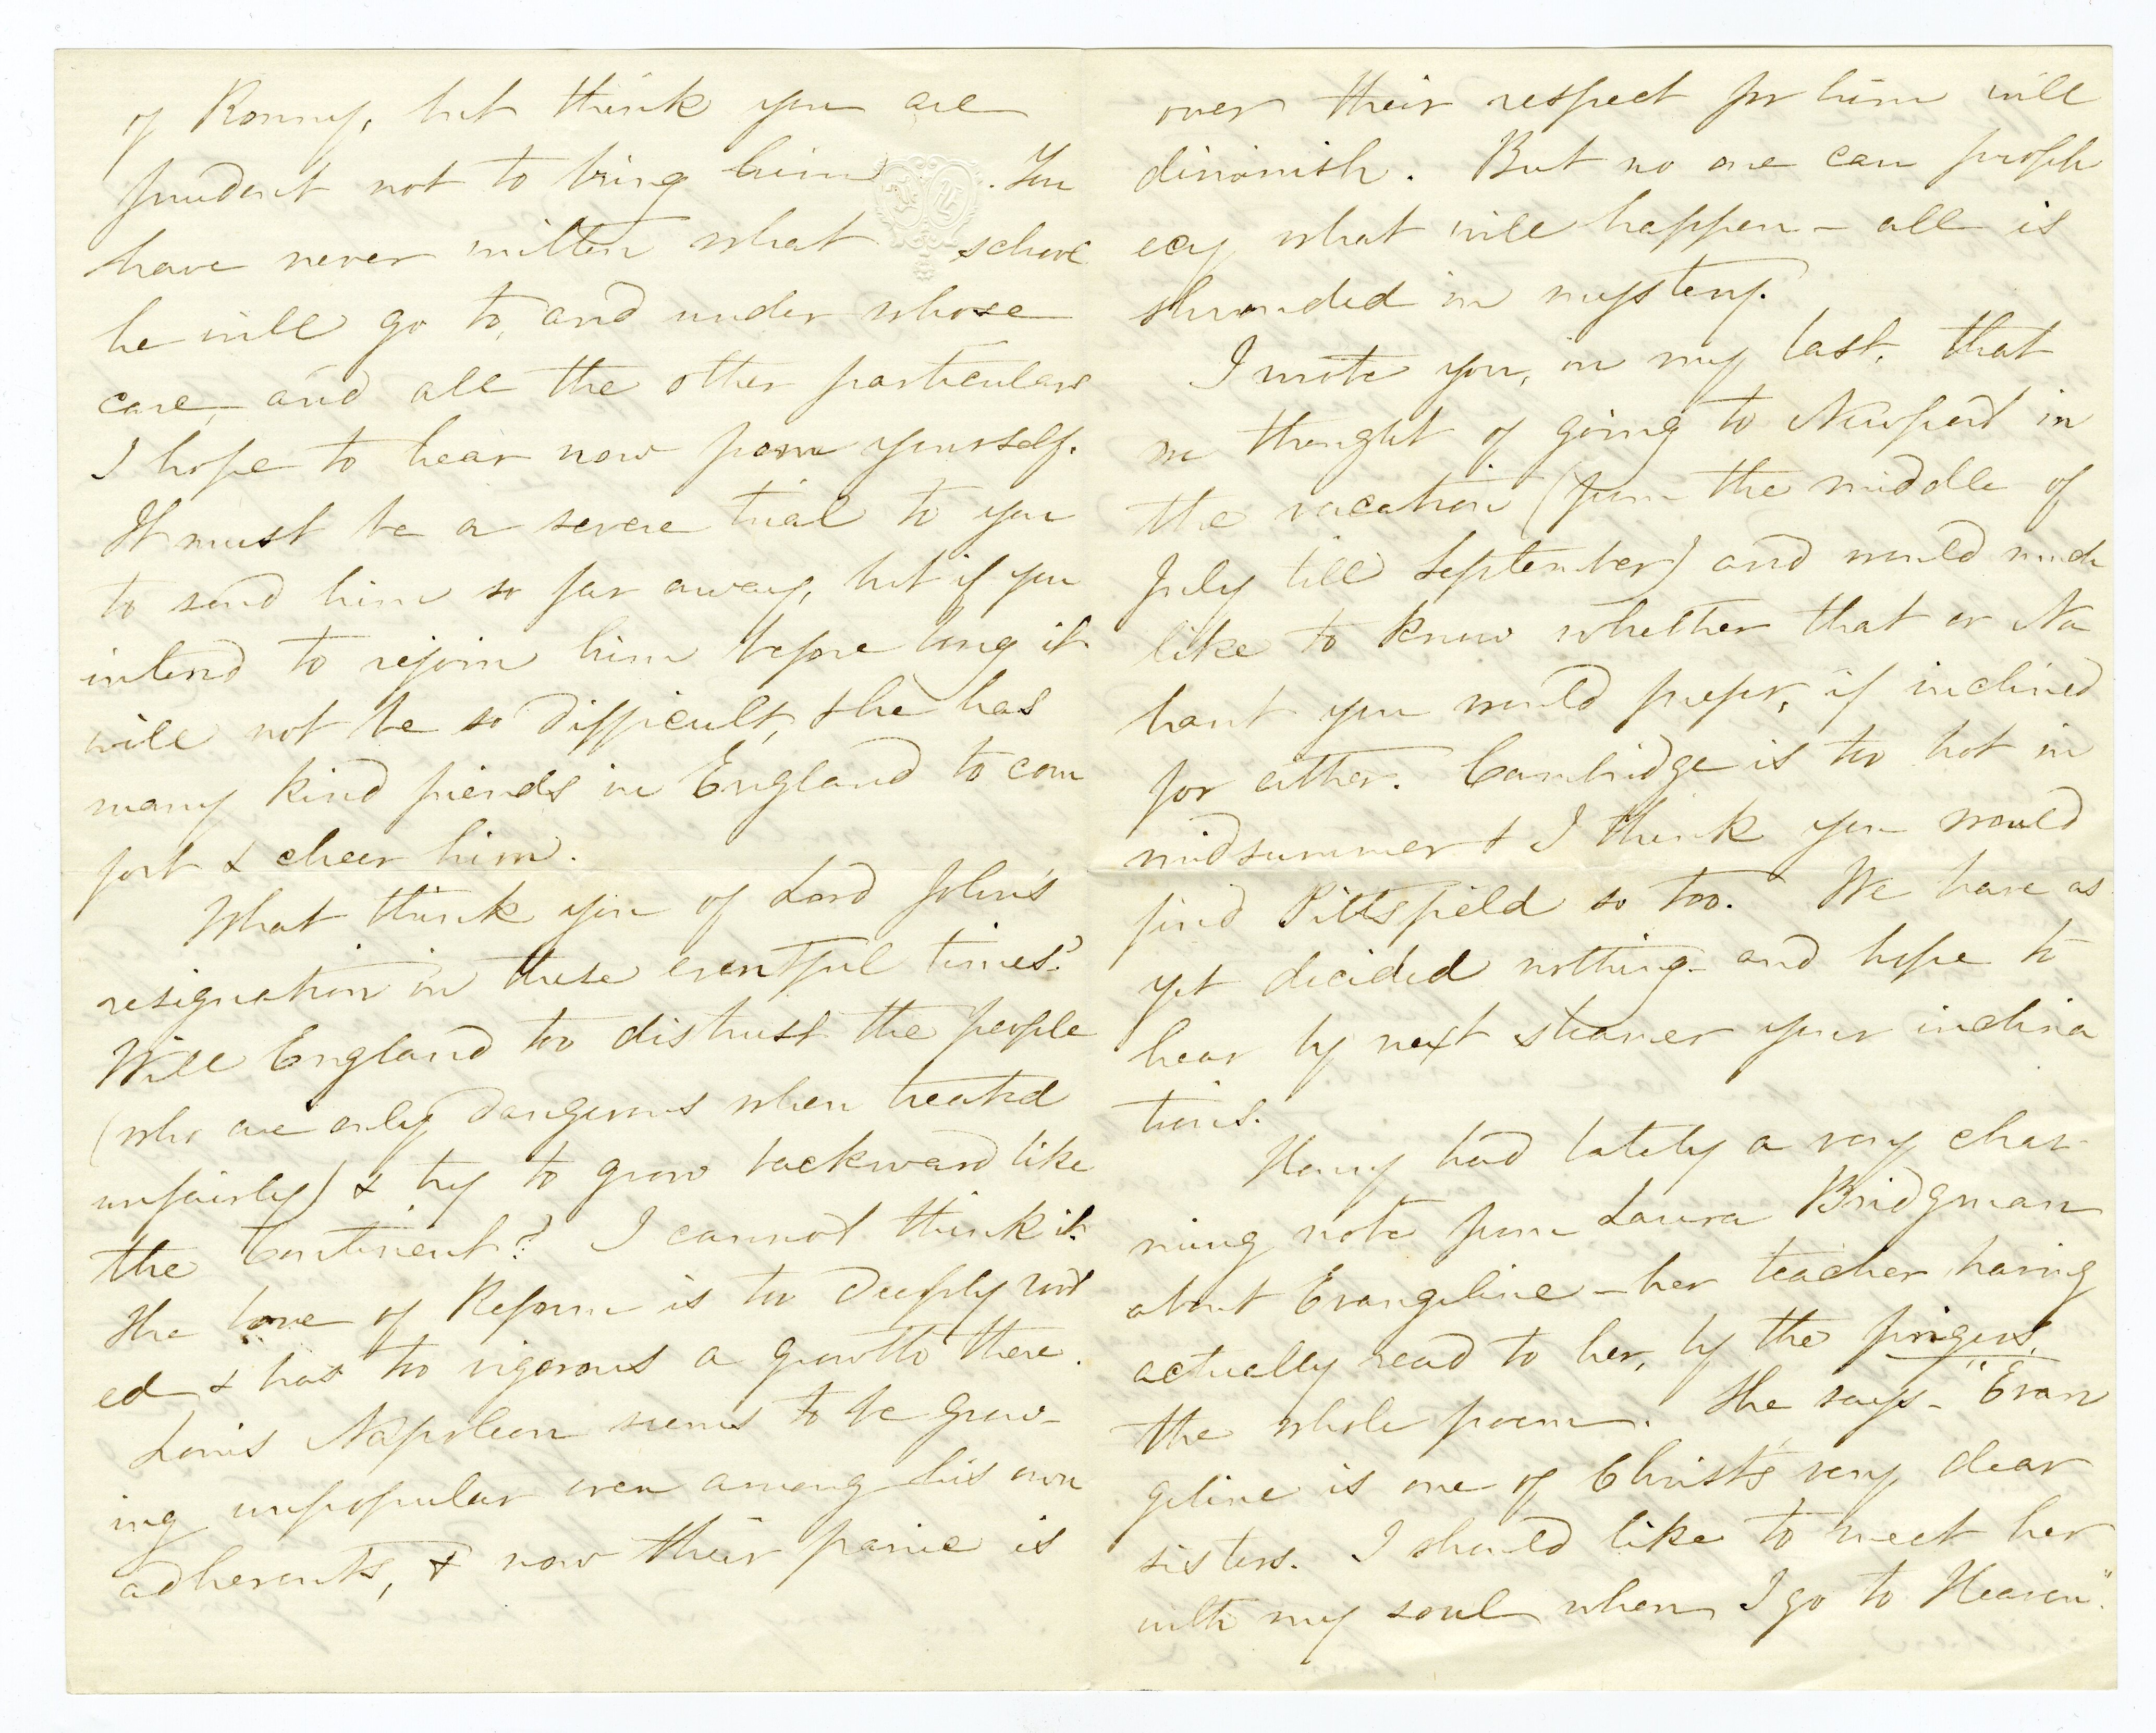 of Ronny, but think you are
prudent not to bring him. You
have never written what school
he will go to, and under whose
care, and all the other particulars
I hope to hear now from yourself.
It must be a severe trial to you
to send him so far away, but if you
intend to rejoin him before long it
will not be so difficult, & he has
many kind friends in England to com
fort & cheer him.
What think you of Lord John's
resignation in these eventful times?
Will England too distrust the people
(who are only dangerous when treated
unfairly) & try to grow backward like
the Continent? I cannot think it.
The love of Reform is too deeply root
ed & has too vigorous a growth there.
Louis Napoleon seems to be grow-
ing unpopular even among his own
adherents, & now their panic is
over their respect for him will
diminish. But no one can proph
ecy what will happen - all is
shrouded in mystery.
I wrote you, in my last, that
we thought of going to Newport in
the vacation (from the middle of
July till September) and would much
like to know whether that or Na
hant you would prefer, if inclined
for either. Cambridge is too hot in
midsummer & I think you would
find Pittsfield so too. We have as
yet decided nothing - and hope to
hear by next steamer your inclina
tions.
Henry had lately a very char-
ming note from Laura Bridgman
about Evangeline - her teacher having
actually read to her, by the fingers,
the whole poem. She says - "Evan
geline is one of Christ's very dear
sisters. I should like to meet her
with my soul when I go to Heaven".